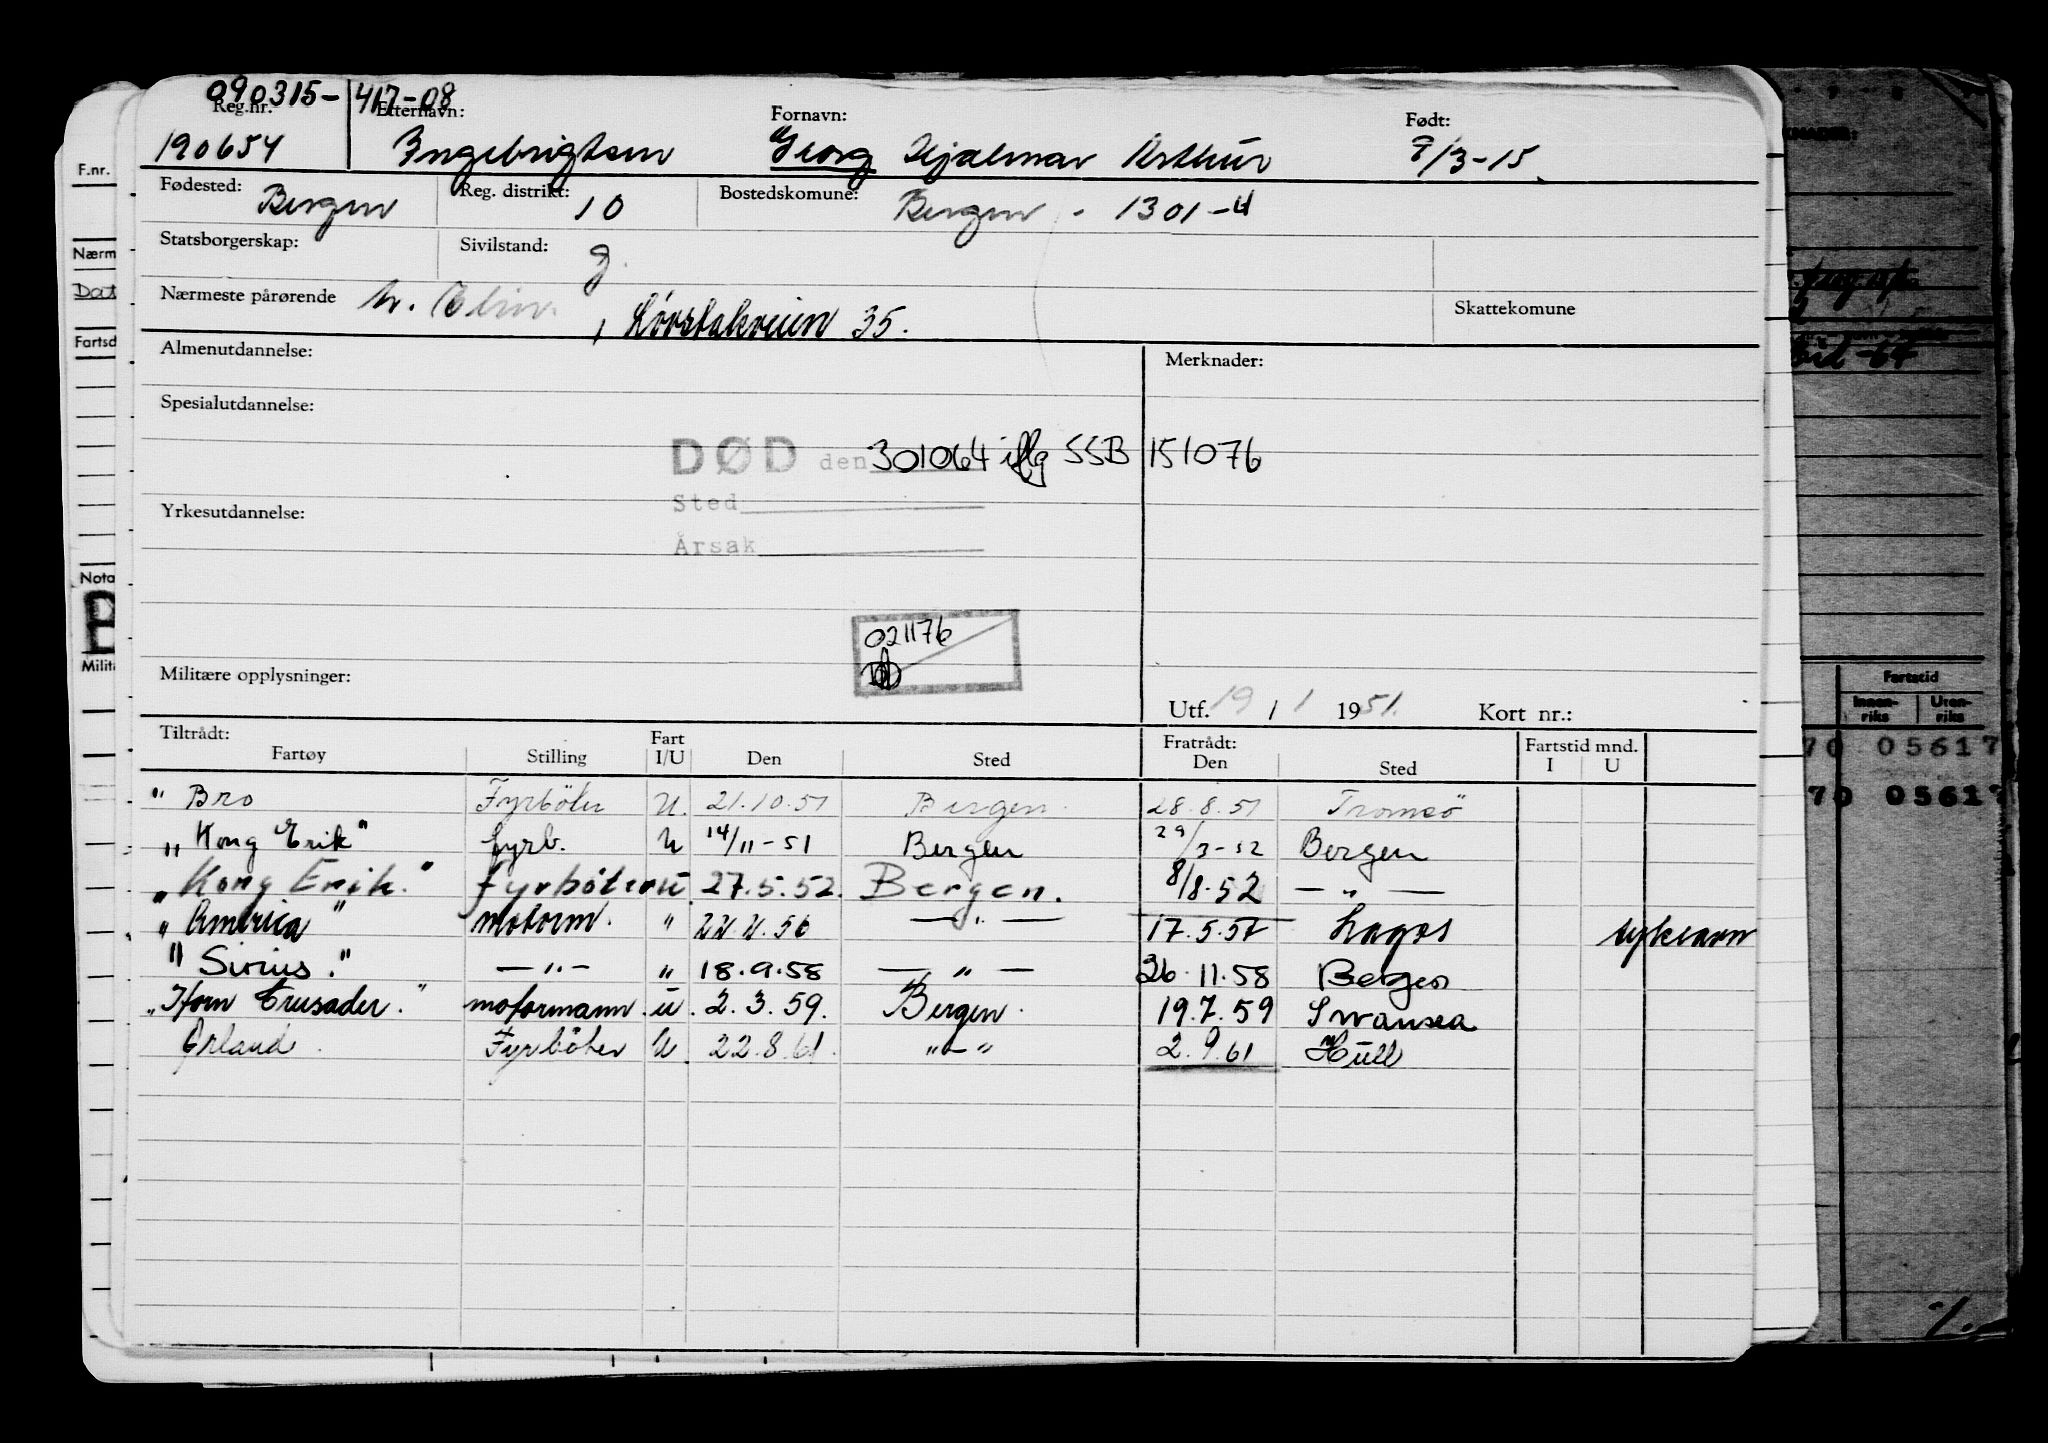 090315- 417-08
Reg.nr. Etternavn: Fornavn: Født:
190654 Ingebrigtsen Georg Hjalmar Arthur 9/3-15.
Fødested: Bergen Reg. distrikt: 10 Bostedskomune: Bergen - 1301-4
Statsborgerskap: Sivilstand: g.
Nærmeste pårørende h. Elin. , Løvstakveien 35. Skattekomune
Almenutdannelse: Merknader:
Spesialutdannelse:
DØD den 301064 iflg SSB 151076
Sted
Yrkesutdannelse:
Årsak
021176
Militære opplysninger:
Utf. 19 / 1 1951. Kort nr.:
Tiltrådt: Fratrådt: Fartstid mnd.
Fartøy Stilling Fart I/U Den Sted Den Sted I U
" Bro Fyrböter U. 21.10.51 Bergen. 28.8.51 Tromsö
" Kong Erik" fyrb. U 14/11-51 Bergen 29/3-52 Bergen
" Kong Erik." fyrböter U 27.5.52. Bergen. 8/8-52 — " —
" America " motorm. " 22.4.56 — " — 17.5.57 Lagos
" Sirius." — " — " 18.9.58 — " — 26.11.58 Bergen
" Horn Crusader." motormann. u. 2.3.59. Bergen. 19.7.59 Swansea
Erland. Fyrböter U. 22.8.61. " — " 2.9.61 Hull
F.nr.
Nærm
Dat
Fartsd
Nota
Milit
Fartstid
Innenriks Utenriks
70 05617
70 05617